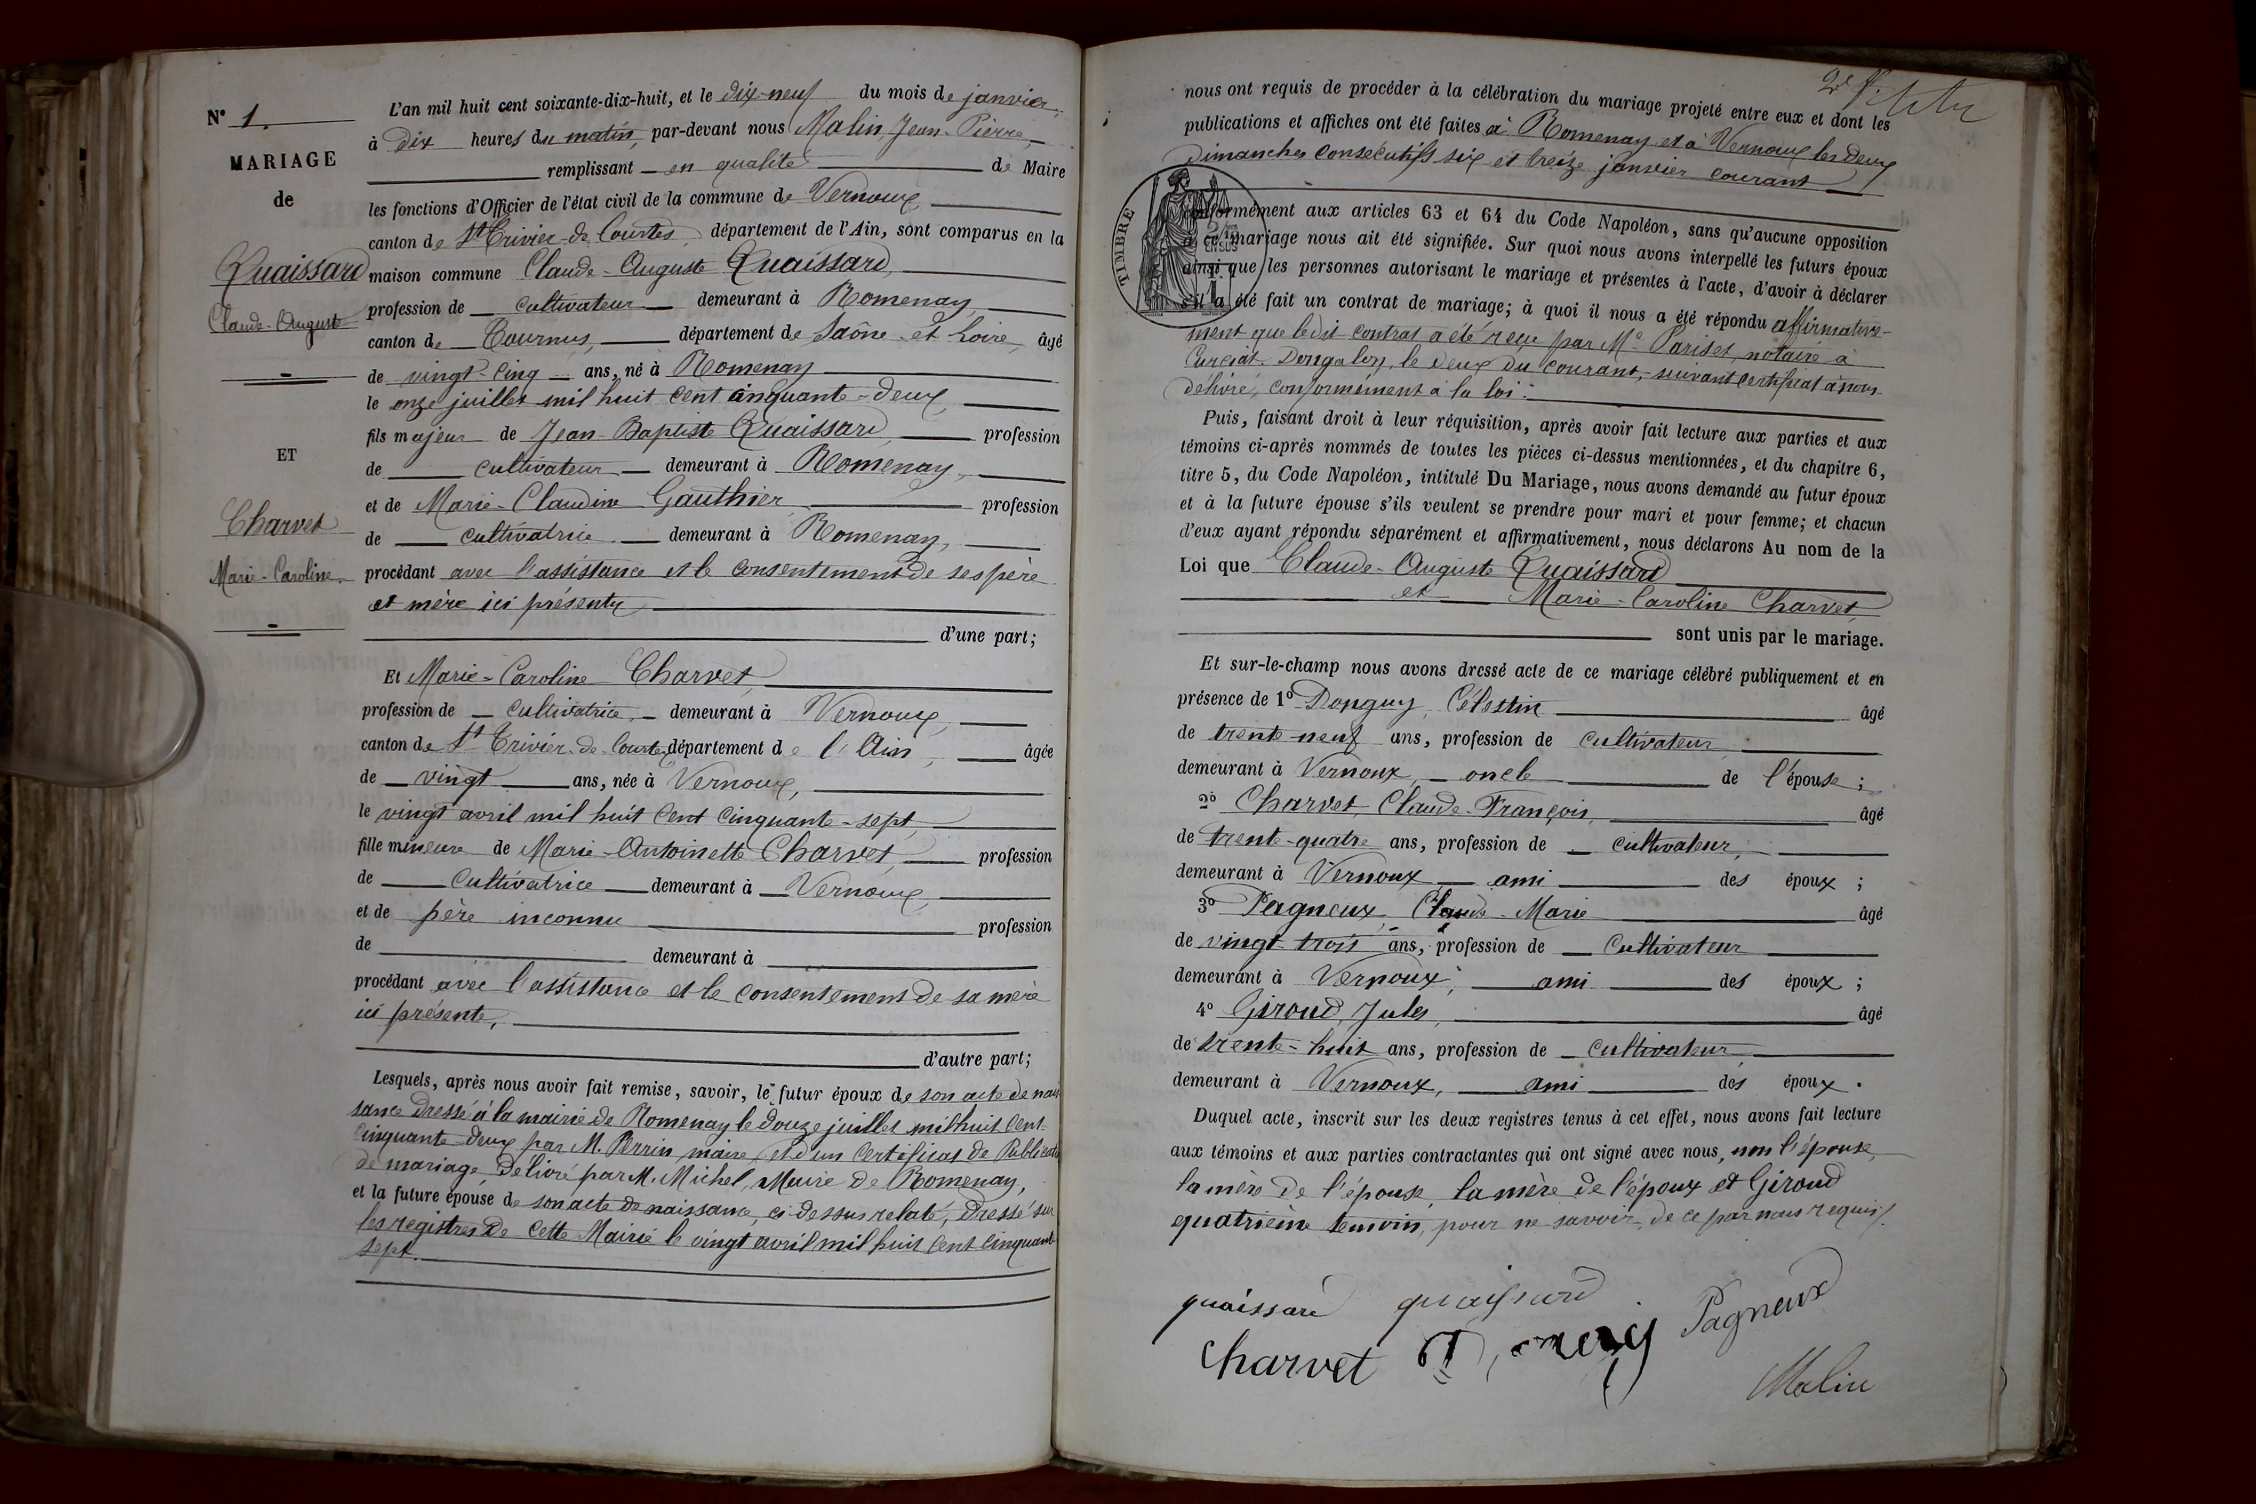 N° 1.
MARIAGE
de
Quaissard
Claude-Auguste
ET
Charvet
Marie-Caroline.
L'an mil huit cent soixante-dix-huit, et le dix-neuf du mois de janvier,
à dix heures du matin, par-devant nous Malin, Jean-Pierre,
remplissant en qualité de Maire
les fonctions d'Officier de l'état civil de la commune de Vernoux,
canton de St Trivier-de-Courtes, département de l'Ain, sont comparus en la
maison commune Claude-Auguste Quaissard,
profession de cultivateur demeurant à Romenay,
canton de Tournus, département de Saône-et-Loire, âgé
de vingt-cinq ans, né à Romenay
le onze juillet mil huit cent cinquante-deux,
fils majeur de Jean-Baptiste Quaissard, profession
de cultivateur demeurant à Romenay,
et de Marie-Claudine Gauthier profession
de cultivatrice demeurant à Romenay,
procédant avec l'assistance et le consentement de ses père
et mère ici présents,
d'une part;
Et Marie-Caroline Charvet,
profession de cultivatrice, demeurant à Vernoux,
canton de St Trivier-de-Courtes, département de l'Ain, âgée
de vingt ans, née à Vernoux,
le vingt avril mil huit cent cinquante-sept,
fille mineure de Marie-Antoinette Charvet, profession
de cultivatrice demeurant à Vernoux,
et de père inconnu profession
de demeurant à
procédant avec l'assistance et le consentement de sa mère
ici présente,
d'autre part;
Lesquels, après nous avoir fait remise, savoir, le futur époux de son acte de nais
sance dressé à la mairie de Romenay le douze juillet mil huit cent
cinquante-deux par M. Perrin maire, et d'un certificat de Publicat
de mariage, délivré par M. Michel, Maire de Romenay,
et la future épouse de son acte de naissance, ci-dessus relaté, dressé sur
les registres de cette Mairie le vingt avril mil huit cent cinquante
sept.
2e
nous ont requis de procéder à la célébration du mariage projeté entre eux et dont les
publications et affiches ont été faites à Romenay et à Vernoux les deux
dimanches consécutifs six et treize janvier courant
TIMBRE
conformément aux articles 63 et 64 du Code Napoléon, sans qu'aucune opposition
à ce mariage nous ait été signifiée. Sur quoi nous avons interpellé les futurs époux
ainsi que les personnes autorisant le mariage et présentes à l'acte, d'avoir à déclarer
s'il a été fait un contrat de mariage; à quoi il nous a été répondu affirmative-
ment que ledit contrat a été reçu par Me Pariset, notaire à
Curciat-Dongalon, le deux du courant, suivant certificat à nous
délivré, conformément à la loi.
Puis, faisant droit à leur réquisition, après avoir fait lecture aux parties et aux
témoins ci-après nommés de toutes les pièces ci-dessus mentionnées, et du chapitre 6,
titre 5, du Code Napoléon, intitulé Du Mariage, nous avons demandé au futur époux
et à la future épouse s'ils veulent se prendre pour mari et pour femme; et chacun
d'eux ayant répondu séparément et affirmativement, nous déclarons Au nom de la
Loi que Claude-Auguste Quaissard
et Marie-Caroline Charvet,
sont unis par le mariage.
Et sur-le-champ nous avons dressé acte de ce mariage célébré publiquement et en
présence de 1° Donguy, Célestin âgé
de trente-neuf ans, profession de cultivateur,
demeurant à Vernoux, oncle de l'épouse;
2° Charvet, Claude-François, âgé
de trente-quatre ans, profession de cultivateur,
demeurant à Vernoux, ami des époux;
3° Pagneux, Claude-Marie âgé
de vingt-trois ans, profession de cultivateur
demeurant à Vernoux, ami des époux;
4° Giroud, Jules, âgé
de trente-huit ans, profession de cultivateur
demeurant à Vernoux, ami des époux.
Duquel acte, inscrit sur les deux registres tenus à cet effet, nous avons fait lecture
aux témoins et aux parties contractantes qui ont signé avec nous, non l'épouse,
la mère de l'épouse, la mère de l'époux et Giroud
quatrième témoin, pour ne savoir, de ce par nous requis.
quaissard quaissard Pagneux
Charvet
Malin